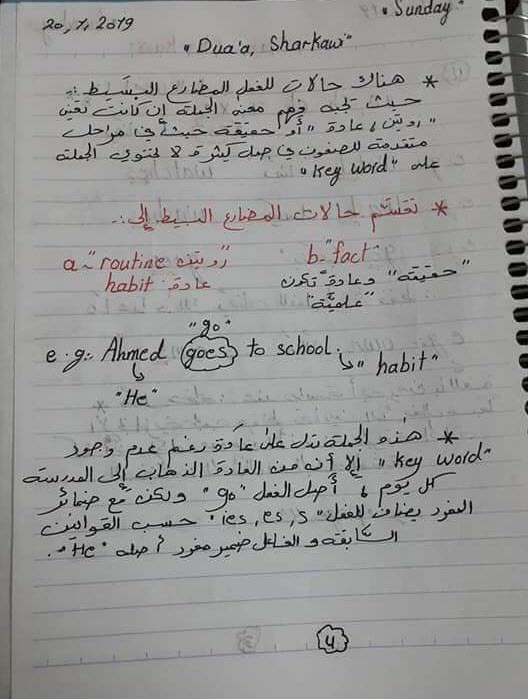 "Sunday"
20, 7, 2019
"Dua'a, Sharkawi"
* هناك حالات للفعل المضارع البسيط :-
حيث يجب فهم معنى الجملة إن كانت تعني
"روتين، عادة" أو حقيقة حيث في مراحل
متقدمة للصفوف في جمل كثيرة لا تحتوي الجملة
على "key word"
* تقسم حالات المضارع البسيط إلى :-
a- "routine روتين" b- "fact"
habit عادة "حقيقة" وعادة تكون
"علميّة"
"go"
e.g:- Ahmed goes to school. ↳ "habit"
"He"
* هذه الجملة تدل على عادة رغم عدم وجود
"key word" إلا أنه من العادة الذهاب إلى المدرسة
كل يوم، أصل الفعل "go" ولكن مع ضمائر
المفرد يضاف للفعل "ies, es, s" حسب القوانين
السابقة و الفاعل ضمير مفرد أصله "He".
4